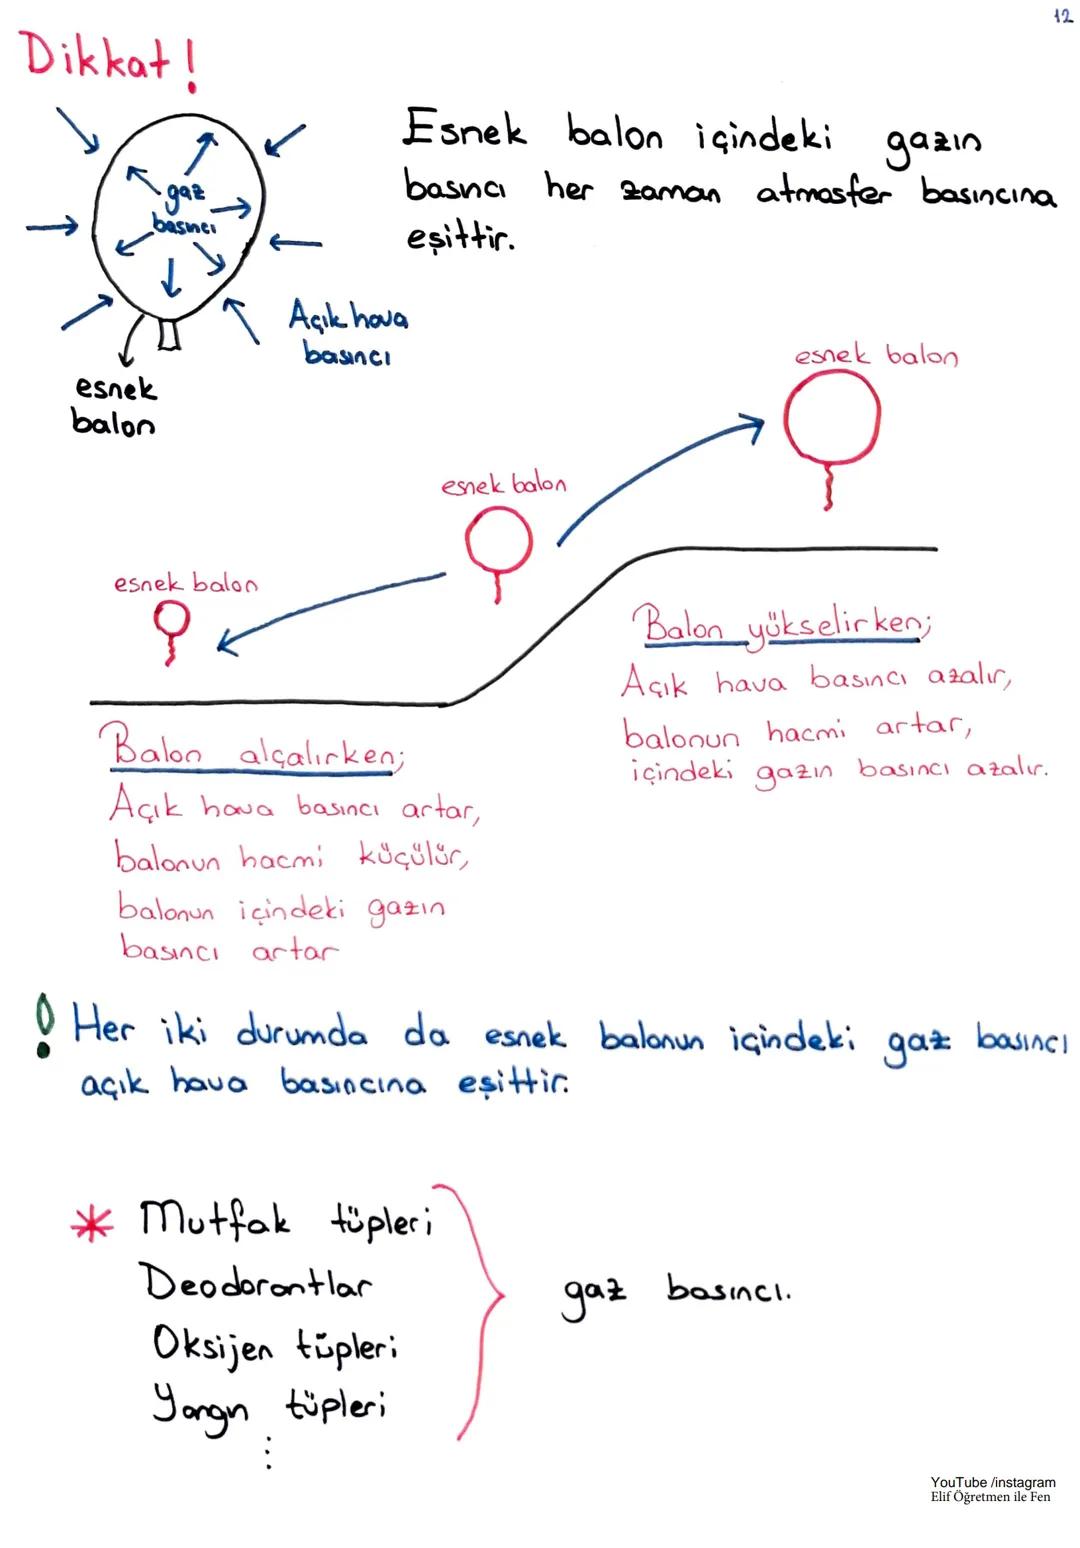 12
Dikkat!
gaz
basıncı
Esnek balon içindeki gazın
basıncı her zaman atmosfer basıncına
eşittir.
Açık hava
basıncı
esnek
balon
esnek balon
esnek balon
esnek balon
Balon yükselirken;
Açık hava basıncı azalır,
balonun hacmi artar,
içindeki gazın basıncı azalır.
Balon alçalırken;
Açık hava basıncı artar,
balonun hacmi küçülür,
balonun içindeki gazın
basıncı artar
! Her iki durumda da esnek balonun içindeki gaz basıncı
açık hava basıncına eşittir.
* Mutfak tüpleri
Deodorantlar
Oksijen tüpleri
Yangın tüpleri
⋮
gaz basıncı.
YouTube /instagram
Elif Öğretmen ile Fen